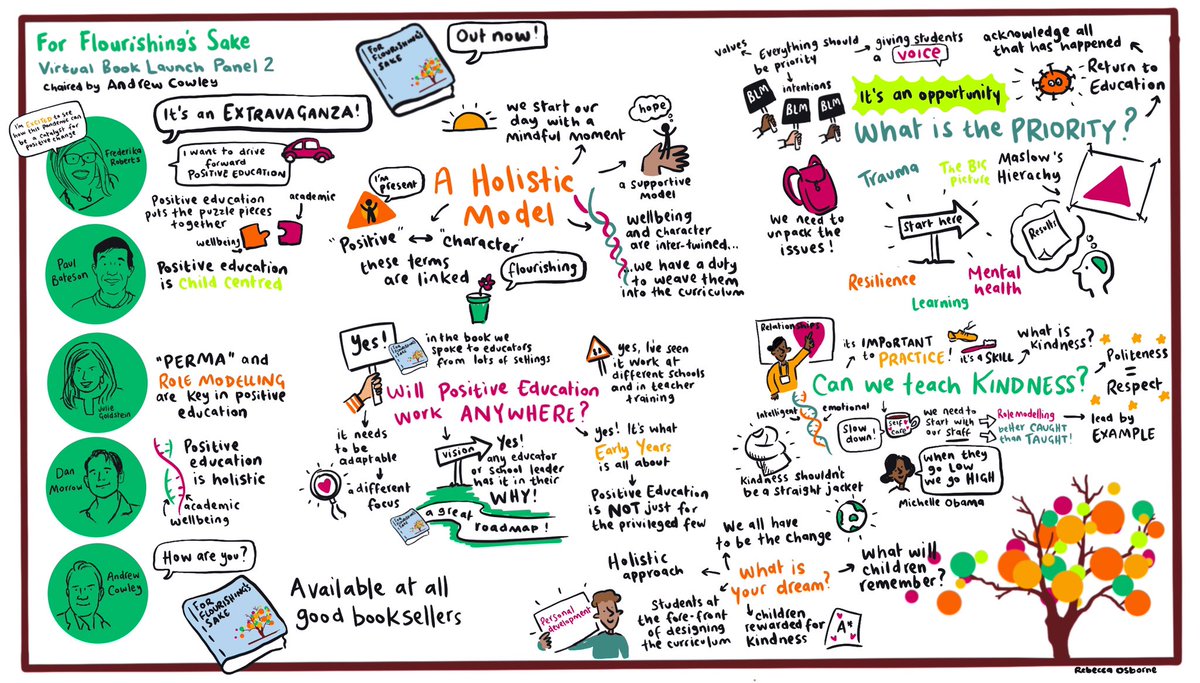 For Flourishing's Sake
Virtual Book Launch Panel 2
chaired by Andrew Cowley
I'm EXCITED to see
how this pandemic can
be a catalyst for
positive change
Frederika
Roberts
Paul
Bateson
Julie
Goldstein
Dan
Morrow
Andrew
Cowley
It's an EXTRAVAGANZA!
I want to drive
forward
POSITIVE EDUCATION
Positive education
puts the puzzle pieces
together
academic
wellbeing
Positive education
is child centred
"PERMA" and
ROLE MODELLING
are key in positive
education
Positive
education
is holistic
academic
wellbeing
How are you?
FOR
FLOURISHING'S
SAKE
Available at all
good booksellers
FOR
FLOURISHING'S
SAKE
Out now!
we start our
day with a
mindful moment
hope
a supportive
model
I'm
present
A Holistic
Model
"Positive" "character"
these terms
are linked
flourishing
wellbeing
and character
are inter-twined...
...we have a duty
to weave them
into the curriculum
Yes!
FOR
FLOURISHING'S
SAKE
in the book we
spoke to educators
from lots of settings
yes, I've seen
it work at
different schools
and in teacher
training
Will Positive Education
work ANYWHERE?
it needs
to be
adaptable
a different
focus
Vision
Yes!
any educator
or school leader
has it in their
WHY!
FOR
FLOURISHING'S
SAKE
a great
roadmap!
yes! It's what
Early Years
is all about
Positive Education
is NOT just for
the privileged few
values
Everything should
be priority
intentions
BLM
BLM
BLM
giving students
a VOICE
acknowledge all
that has happened
It's an opportunity
Return to
Education
What is the PRIORITY?
we need to
unpack the
issues!
Trauma
The BIG
picture
Maslow's
Hierachy
Start here
Results
Resilience
Learning
Mental
health
Relationships
its IMPORTANT
to PRACTICE!
it's a SKILL
What is
Kindness?
Politeness
=
Respect
Can we teach KINDNESS?
Intelligent
emotional
Slow
down!
self
care
we need to
start with
our staff
Role modelling
better CAUGHT
than TAUGHT!
lead by
EXAMPLE
Kindness shouldn't
be a straight jacket
when they
go low
we go HIGH
Michelle Obama
We all have
to be the change
Holistic
approach
What is
your dream?
What will
children
remember?
Personal
development
Students at
the fore-front
of designing
the curriculum
children
rewarded for
Kindness
A*
Rebecca Osborne